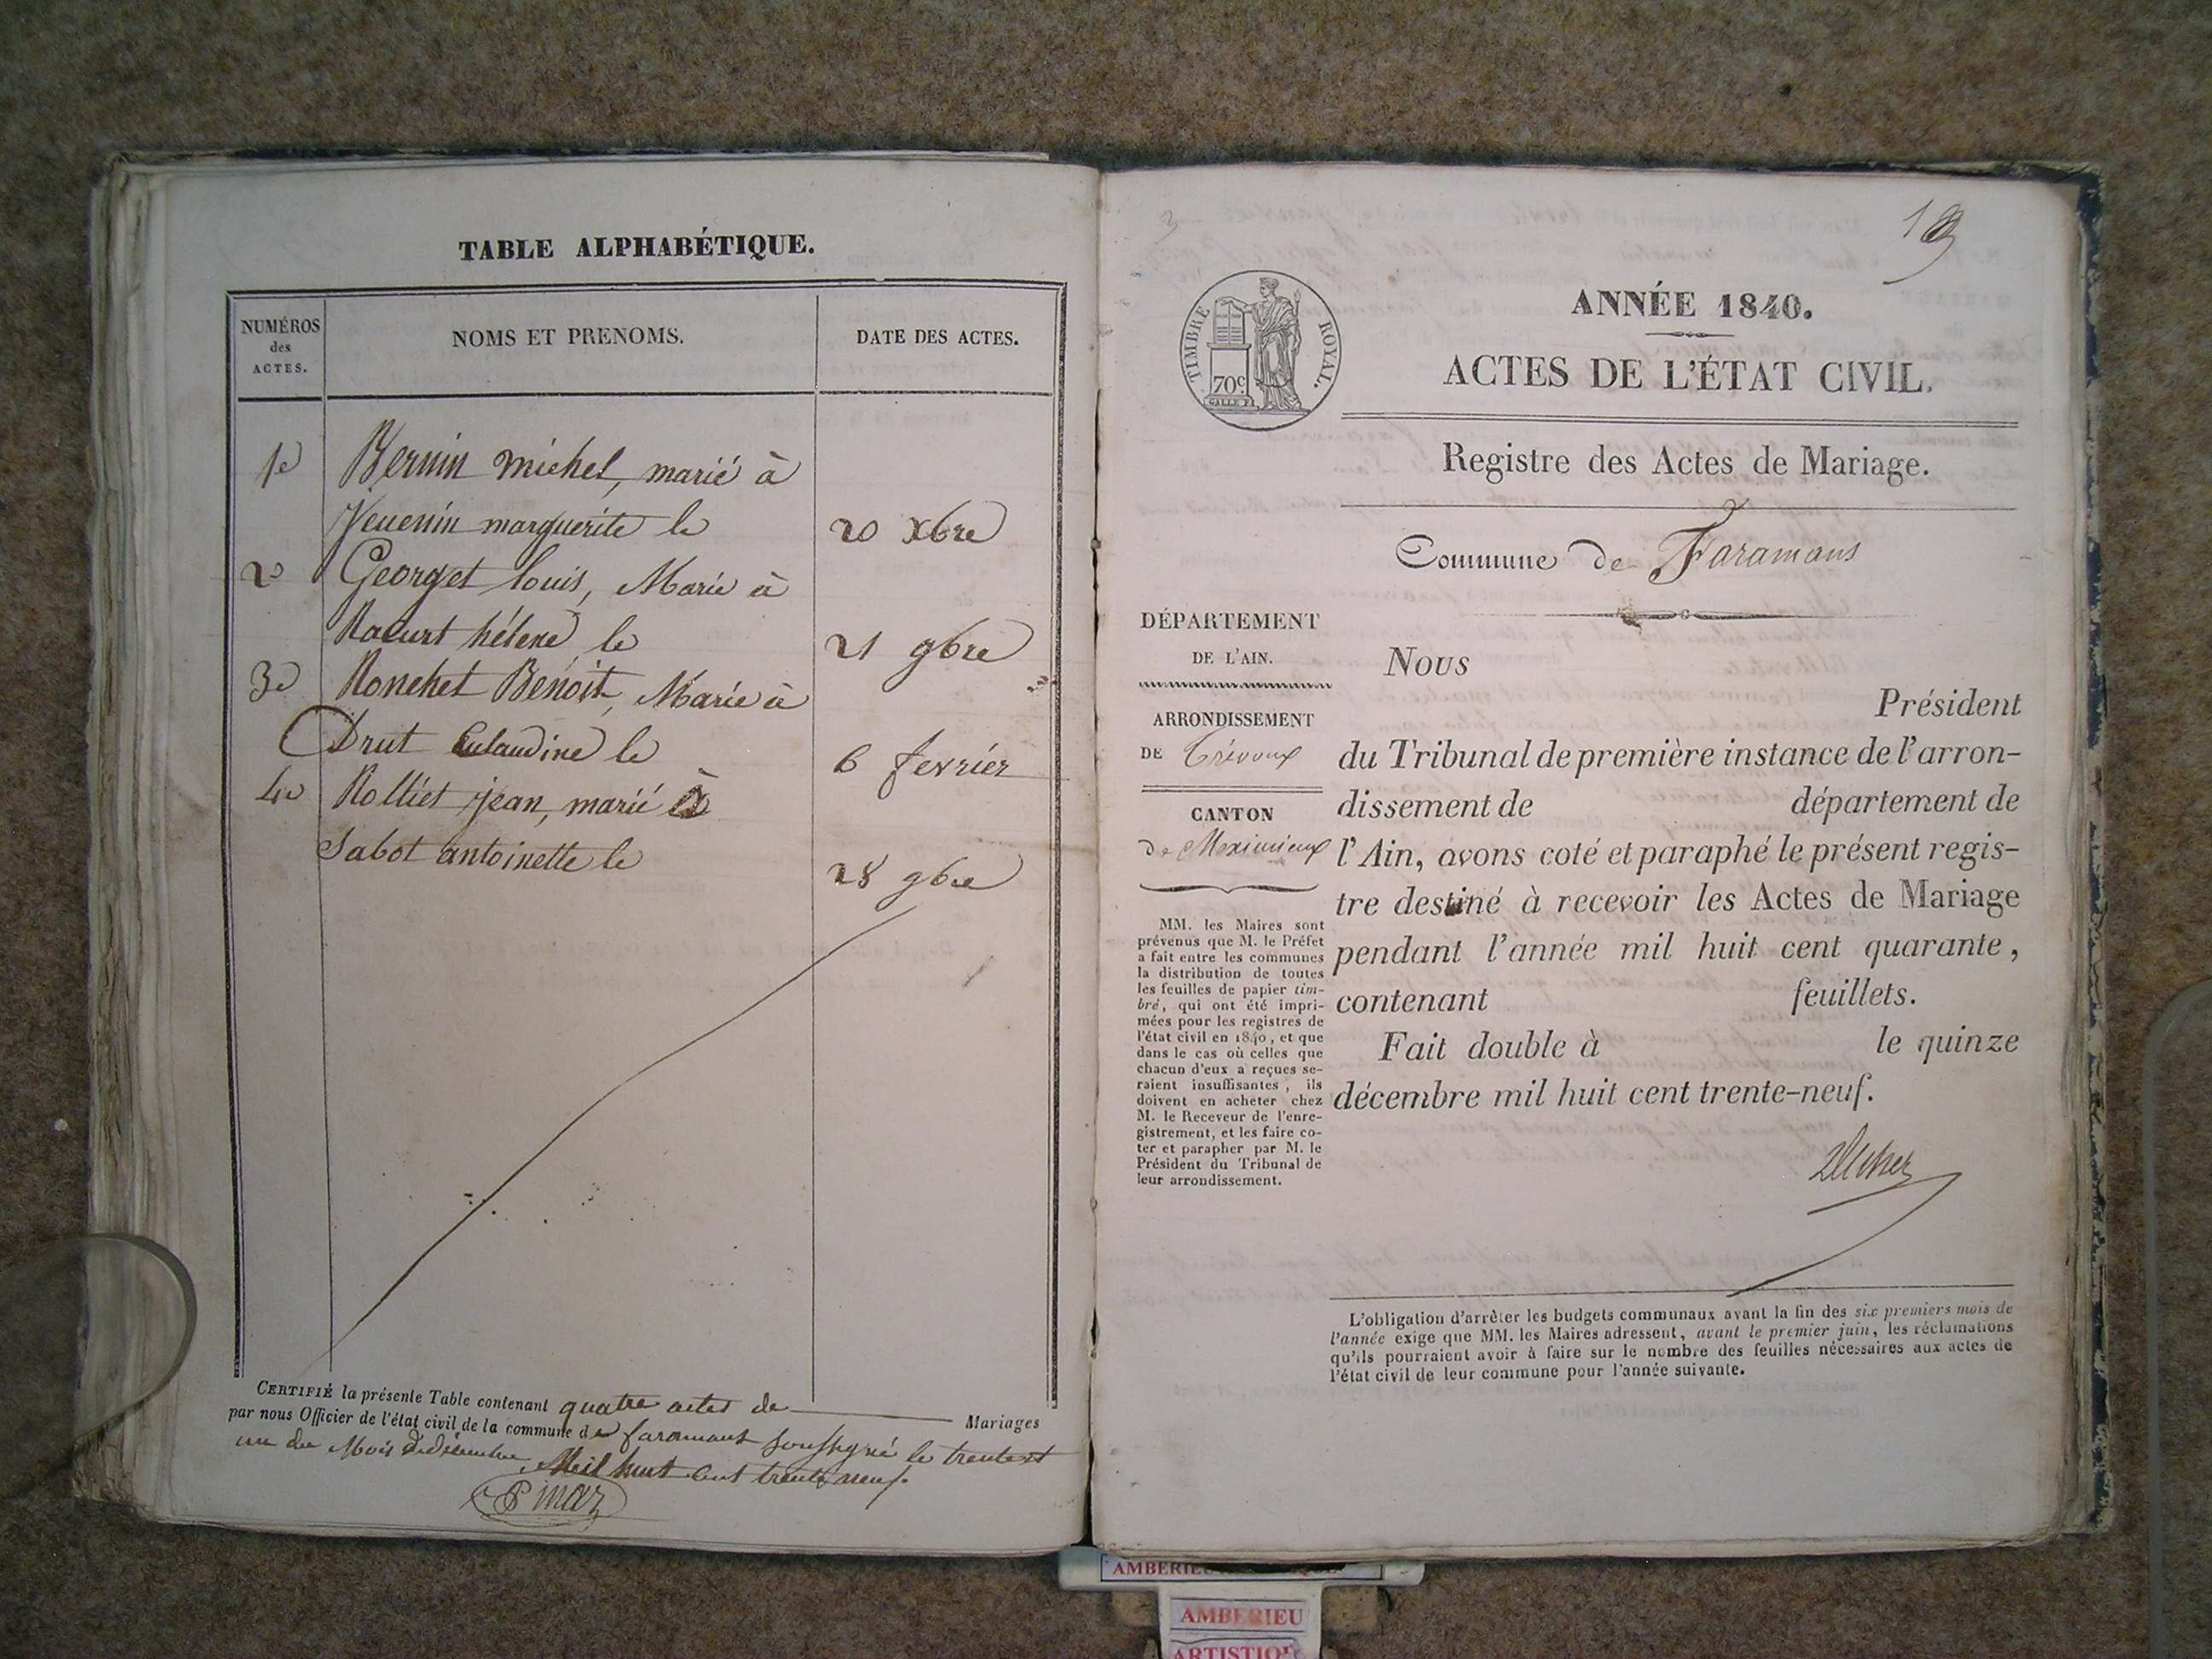 TABLE ALPHABÉTIQUE.
NUMÉROS
des
ACTES.
NOMS ET PRENOMS.
DATE DES ACTES.
1e Bernin michel, marié à
marguerite le 20 Xbre
2e Georget louis, Marié à
Racurt hélene le 21 9bre
3e Ronchet Benoit, Marié à
Drut Claudine le 6 fevrier
4e Rolliet jean, marié à
Sabot antoinette le 28 9bre
CERTIFIÉ la présente Table contenant quatre actes de Mariages
par nous Officier de l'état civil de la commune de faramans soussigné le trente et
un du Mois de décembre, Mil huit cent trente neuf.
ANNÉE 1840.
ACTES DE L'ÉTAT CIVIL.
TIMBRE ROYAL.
70c
Registre des Actes de Mariage.
Commune de Faramans
DÉPARTEMENT
DE L'AIN.
ARRONDISSEMENT
DE Trévoux
CANTON
de Meximieux
MM. les Maires sont
prévenus que M. le Préfet
a fait entre les communes
la distribution de toutes
les feuilles de papier tim-
bré, qui ont été impri-
mées pour les registres de
l'état civil en 1840, et que
dans le cas où celles que
chacun d'eux a reçues se-
raient insuffisantes, ils
doivent en acheter chez
M. le Receveur de l'enre-
gistrement, et les faire co-
ter et parapher par M. le
Président du Tribunal de
leur arrondissement.
Nous
Président
du Tribunal de première instance de l'arron-
dissement de département de
l'Ain, avons coté et paraphé le présent regis-
tre destiné à recevoir les Actes de Mariage
pendant l'année mil huit cent quarante,
contenant feuillets.
Fait double à le quinze
décembre mil huit cent trente-neuf.
L'obligation d'arrêter les budgets communaux avant la fin des six premiers mois de
l'année exige que MM. les Maires adressent, avant le premier juin, les réclamations
qu'ils pourraient avoir à faire sur le nombre des feuilles nécessaires aux actes de
l'état civil de leur commune pour l'année suivante.
AMBERIEU